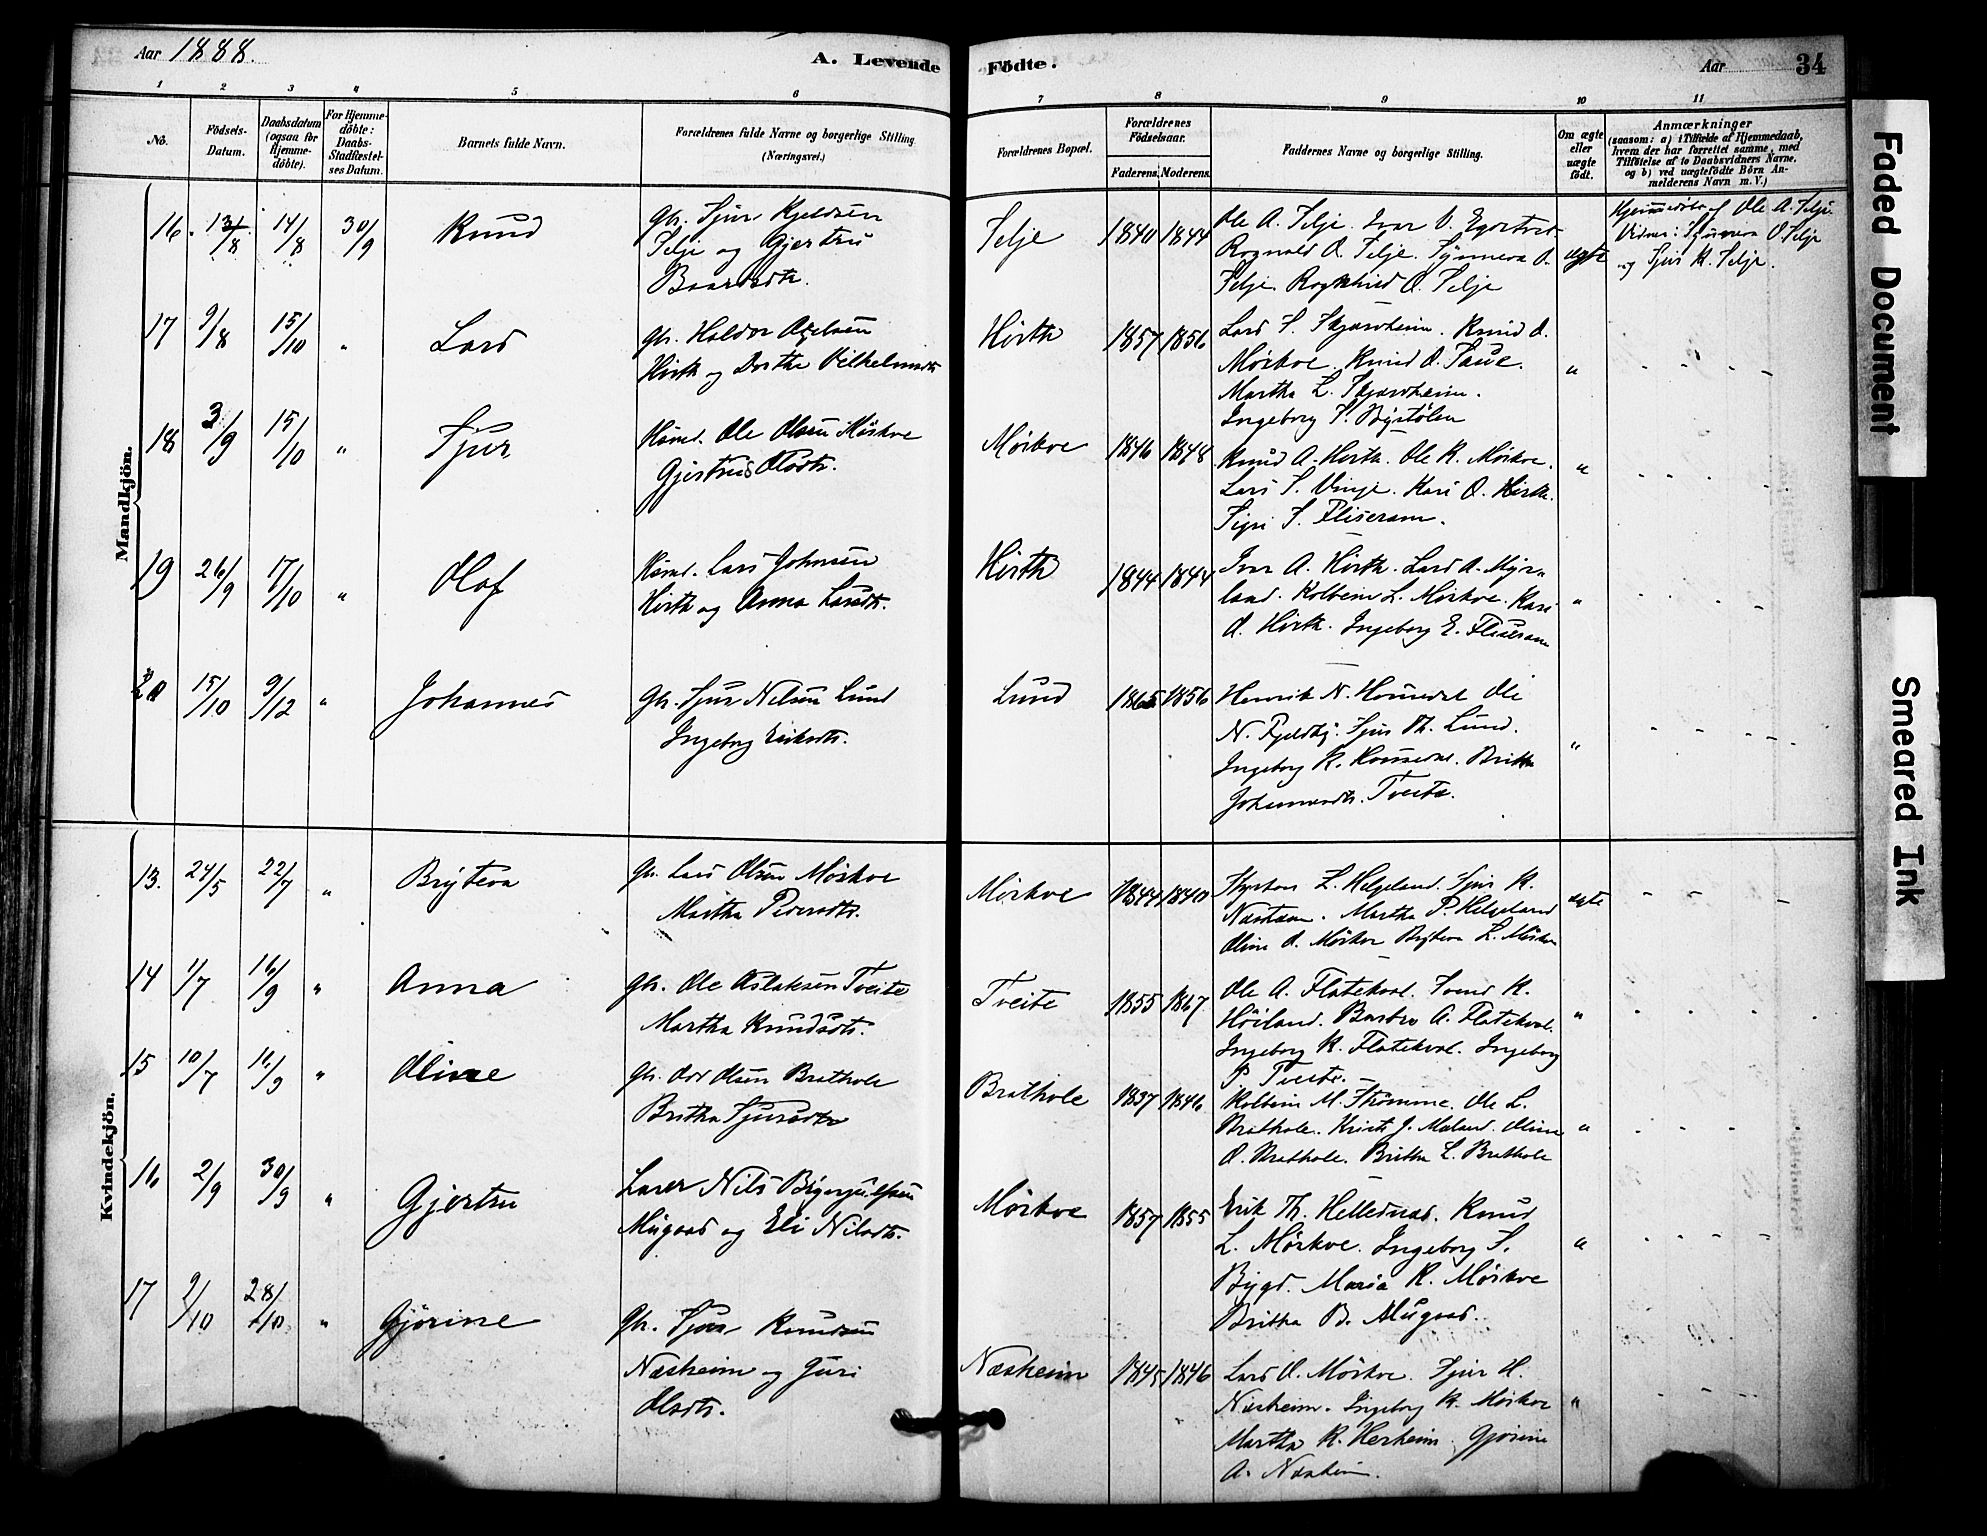 Aar 1888.
A. Levende
Födte.
Aar
34
1
2
3
4
5
6
7
8
9
10
11
No.
Födsels-
Datum.
Daabsdatum
(ogsaa for
Hjemme-
döbte).
For Hjemme-
döbte:
Daabs-
Stadfæstel-
ses Datum.
Barnets fulde Navn.
Forældrenes fulde Navne og borgerlige Stilling
(Næringsvei.)
Forældrenes Bopæl.
Forældrenes
Födselsaar.
Faderens.
Moderens.
Faddernes Navne og borgerlige Stilling.
Om ægte
eller
uægte
födt.
Anmærkninger
(saasom: a) i Tilfælde af Hjemmedaab,
hvem der har forrettet samme, med
Tilföielse af to Daabsvidners Navne.
og b) ved uægtefödte Börn An-
melderens Navn m. V.)
Mandkjön.
16. 13/8 14/8 30/9 Knud
Gbr. Sjur Kjeldsen
Selje og Gjertru
Baardsdtr.
Selje 1840 1844
Ole A. Selje. Ivar O.
Rognald O. Selje. Synneva O.
Selje. Ragnhild O. Selje
ægte
Hjemmedöbt af Ole A. Selje.
Vidner: Synneva O. Selje
og Sjur K. Selje.
17 9/8 15/10 " Lars
Gbr. Haldor Axelsen
Hirth og Dorthe Vilhelmsdtr
Hirth 1857 1856
Lars S. Skjærvheim. Knud O.
Mörkve. Knud O. Saue.
Martha L. Skjærvheim.
Ingeborg S. Böystölen
"
18 3/9 15/10 " Sjur
Hsmd. Ole Olsen Mörkve
Gjertrud Olsdtr.
Mörkve 1846 1848
Knud A. Hirth. Ole K. Mörkve.
Lars S. Vinje. Kari O. Hirth.
Sigri S. Fliseram.
"
19 26/9 17/10 " Olaf
Hsmd. Lars Johnsen
Hirth og Anna Larsdtr.
Hirth 1844 1844
Ivar A. Hirth. Lars A. Myr-
land. Kolbein L. Mörkve. Kari
O. Hirth. Ingeborg E. Fliseram
"
20 15/10 9/12 " Johannes
Gbr. Sjur Nilsen Lund
Ingeborg Eriksdtr.
Lund 1865 1856
Henrik N. Hommedal Ole
N. Sjur Th. Lund.
Ingeborg K. Hommedal. Britha
Johannesdtr. Tveite.
"
Kvindekjön.
13. 24/5 22/7 " Bryteva
Gbr. Lars Olsen Mörkve
Martha Pedersdtr.
Mörkve 1844 1840
L. Helgeland. Sjur K.
Martha P. Helgeland
Oline O. Mörkve Bryteva L. Mörkve
ægte
14 1/7 16/9 " Anna
Gbr. Ole Aslaksen Tveite
Martha Knudsdtr.
Tveite 1855 1867
Ole A. Flatekval. Svend K.
Höiland. Barbro A. Flatekval.
Ingeborg K. Flatekval. Ingeborg
P. Tveite.
"
15 10/7 16/9 " Oline
Gbr. Odd Olsen Brathole
Britha Sjursdtr
Brathole 1837 1846
Kolbein M. Strömme. Ole L.
Brathole. Kristi J. Mæland. Oline
O. Brathole. Britha L. Brathole
"
16 2/9 30/9 " Gjertru
Lærer Nils Brynjulfsen
Mugaas og Eli Nilsdtr.
Mörkve 1857 1855
Erik Th. Hellednas. Knud
L. Mörkve. Ingeborg S.
Bygd. Maria K. Mörkve
Britha B. Mugaas.
"
17 9/10 28/10 " Gjörine
Gbr. Sjur Knudsen
Næsheim og Guri
Olsdtr.
Næsheim 1845 1846
Lars O. Mörkve. Sjur H.
Næsheim. Ingeborg K. Mörkve
Martha K. Herheim. Gjörine
A. Næsheim.
"
Faded Document
Smeared Ink